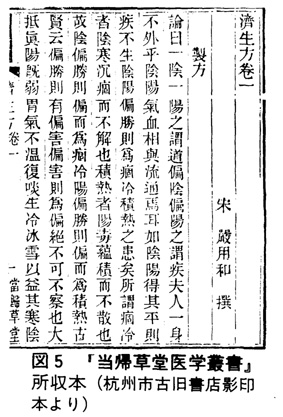 濟生方卷一
宋 嚴用和 撰
製方
論曰一陰一陽之謂道偏陰偏陽之謂疾夫人一身
不外乎陰陽氣血相與流通焉耳如陰陽得其平則
疾不生陰陽偏勝則為痼冷積熱之患矣所謂痼冷
者陰寒沉痼而不解也積熱者陽毒蘊積而不散也
故陰偏勝則偏而為痼冷陽偏勝則偏而為積熱古
賢云偏勝則有偏害偏害則為偏絕不可不察也大
抵真陽既弱胃氣不溫復啖生冷冰雪以益其寒陰
生方卷一
一 當歸草堂
図5 『当帰草堂医学叢書』
所収本（杭州市古旧書店影印
本より）